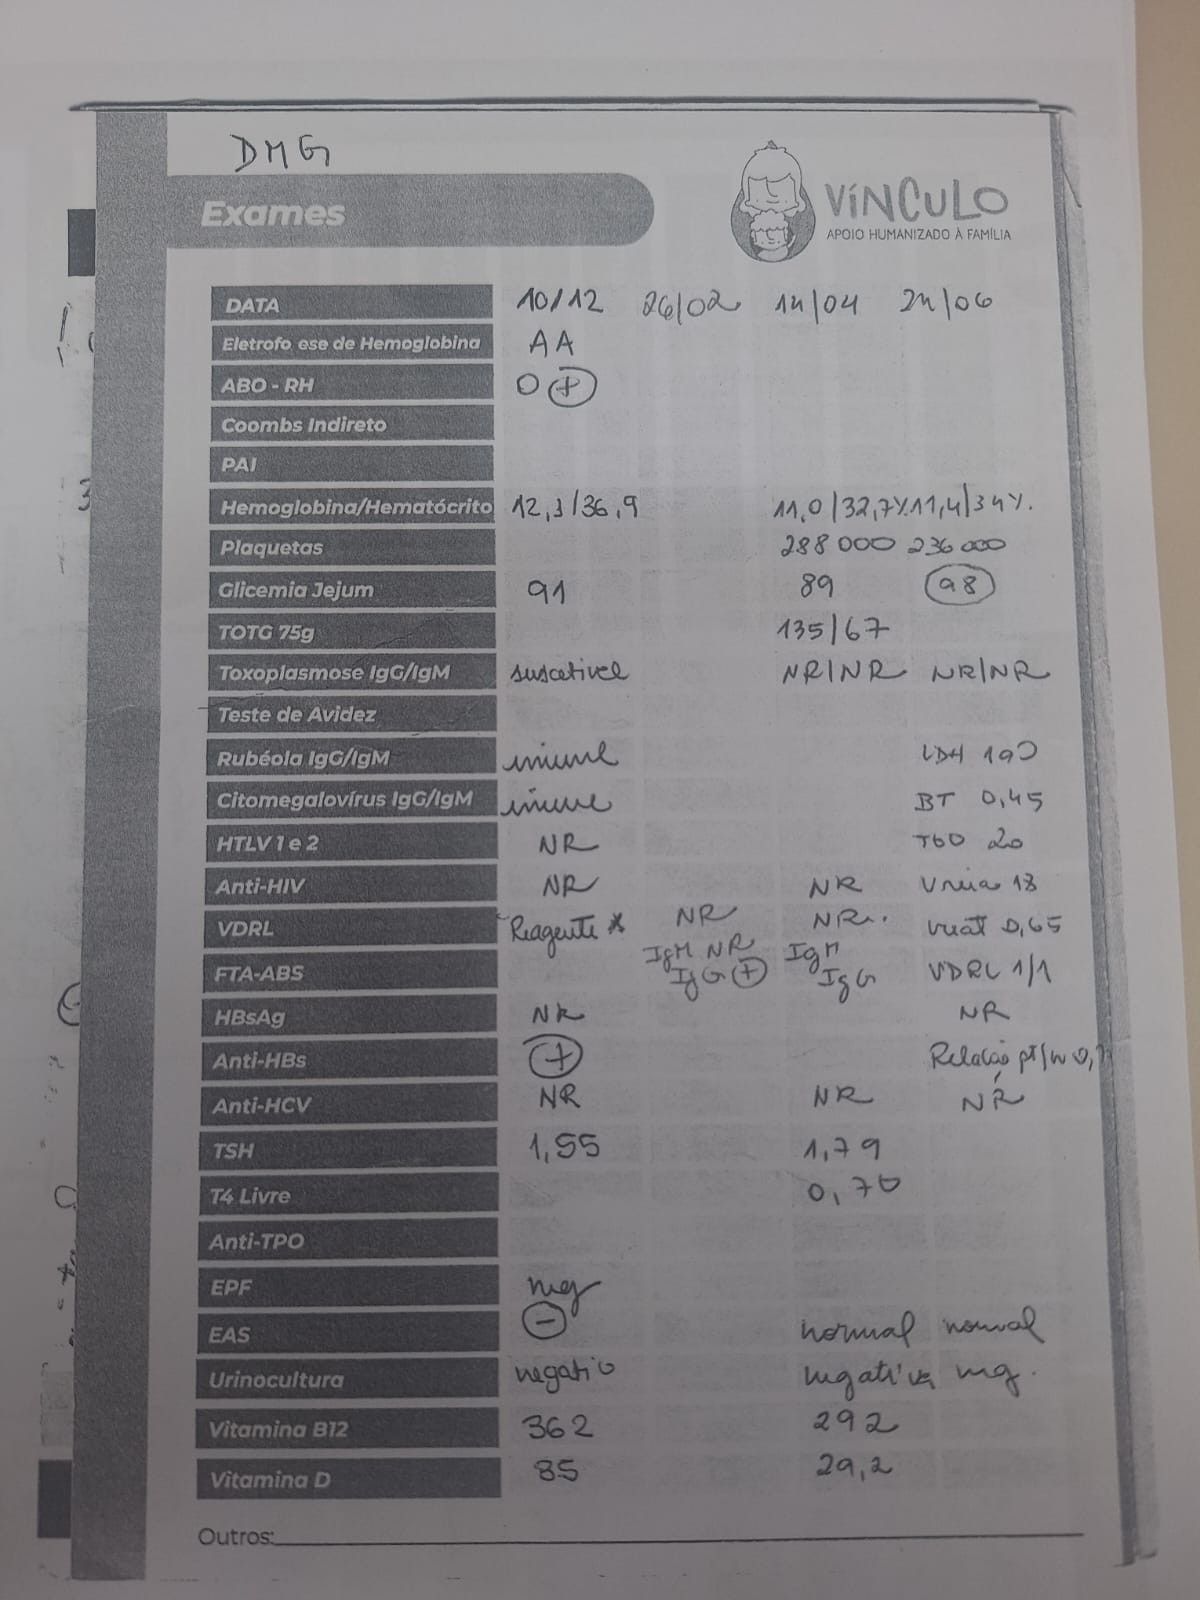 DMG
Exames
VÍNCULO
APOIO HUMANIZADO À FAMÍLIA
DATA 10/12 26/02 14/04 24/06
Eletrofo ese de Hemoglobina AA
ABO - RH O +
Coombs Indireto
PAI
Hemoglobina/Hematócrito 12,3/36,9 11,0/32,7% 11,4/34%.
Plaquetas 288 000 236 000
Glicemia Jejum 91 89 98
TOTG 75g 135/67
Toxoplasmose IgG/IgM suscetivel NR/NR NR/NR
Teste de Avidez
Rubéola IgG/IgM imune LDH 190
Citomegalovírus IgG/IgM imune BT 0,45
HTLV 1 e 2 NR TGO 20
Anti-HIV NR NR Ureia 18
VDRL Reagente * NR NR. creat 0,65
FTA-ABS IgM NR IgG + IgM IgG VDRL 1/1
HBsAg NR NR
Anti-HBs + Relação pt/
Anti-HCV NR NR NR
TSH 1,55 1,79
T4 Livre 0,70
Anti-TPO
EPF neg
EAS - normal normal
Urinocultura negativo negativa neg.
Vitamina B12 362 292
Vitamina D 85 29,2
Outros: